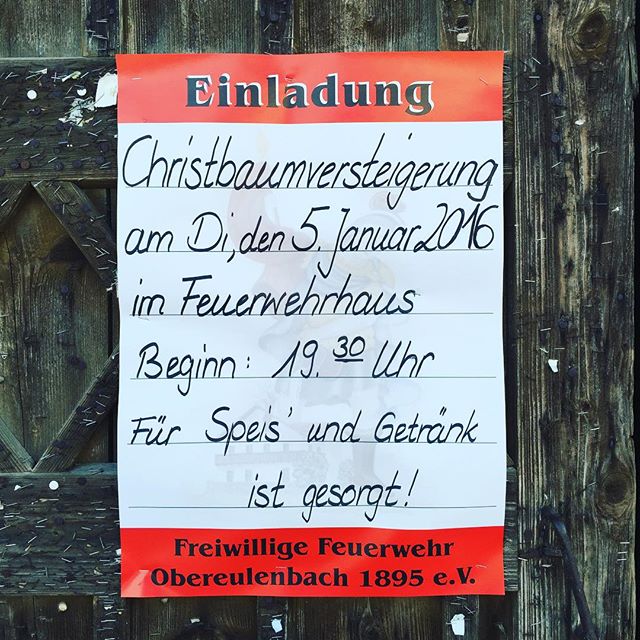 Einladung
Christbaumversteigerung
am Di, den 5. Januar 2016
im Feuerwehrhaus
Beginn: 19.30 Uhr
Für Speis' und Getränk
ist gesorgt!
Freiwillige Feuerwehr
Obereulenbach 1895 e.V.